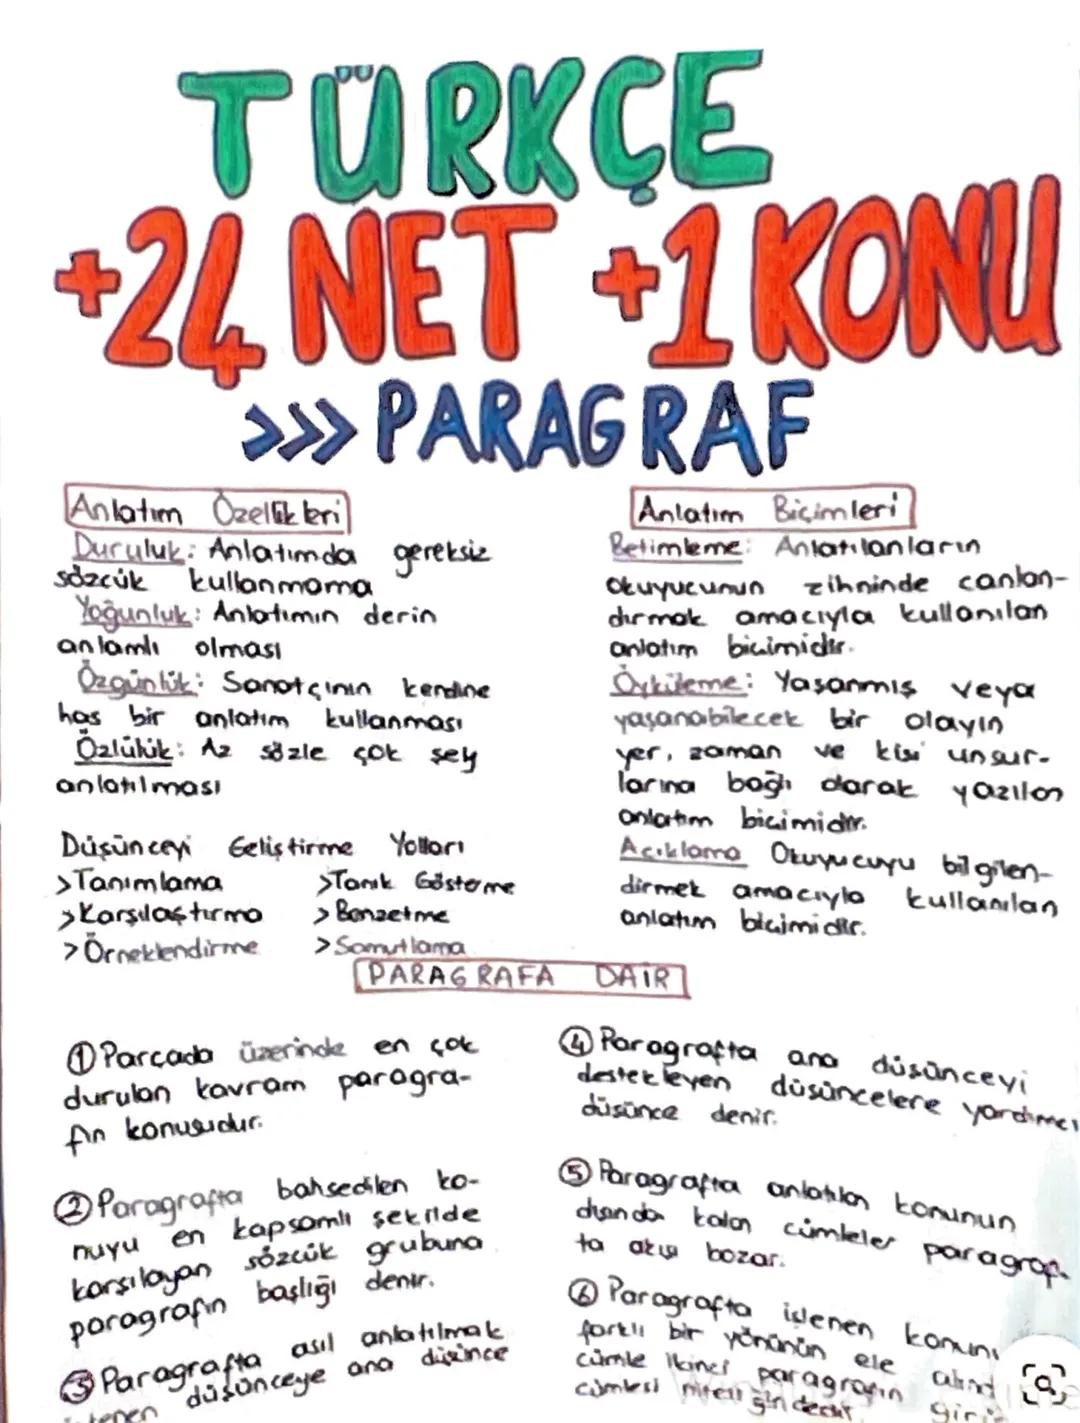 TÜRKÇE
+24 NET +1 KONU
>>> PARAGRAF
Anlatım Özellikleri
Duruluk: Anlatımda gereksiz
sözcük kullanmama
Yoğunluk: Anlatımın derin
anlamlı olması
Özgünlük: Sanatçının kendine
has bir anlatım kullanması
Özlülük: Az sözle çok şey
anlatılması
Düşünceyi Geliştirme Yolları
>Tanımlama >Tanık Gösterme
>Karşılaştırma >Benzetme
>Örneklendirme >Somutlama
Anlatım Biçimleri
Betimleme: Anlatılanların
okuyucunun zihninde canlan-
dırmak amacıyla kullanılan
anlatım biçimidir.
Öyküleme: Yaşanmış veya
yaşanabilecek bir olayın
yer, zaman ve kişi unsur-
larına bağlı olarak yazılan
anlatım biçimidir.
Açıklama Okuyucuyu bilgilen-
dirmek amacıyla kullanılan
anlatım biçimidir.
PARAGRAFA DAİR
① Parçada üzerinde en çok
durulan kavram paragra-
fın konusudur.
② Paragrafta bahsedilen ko-
nuyu en kapsamlı şekilde
karşılayan sözcük grubuna
paragrafın başlığı denir.
③ Paragrafta asıl anlatılmak
istenen düşünceye ana düşünce
④ Paragrafta ana düşünceyi
destekleyen düşüncelere yardımcı
düşünce denir.
⑤ Paragrafta anlatılan konunun
dışında kalan cümleler paragraf-
ta akışı bozar.
⑥ Paragrafta işlenen konunu
farklı bir yönünün ele alınd
cümle ikinci paragrafın giriş
cümlesi niteliğindedir.